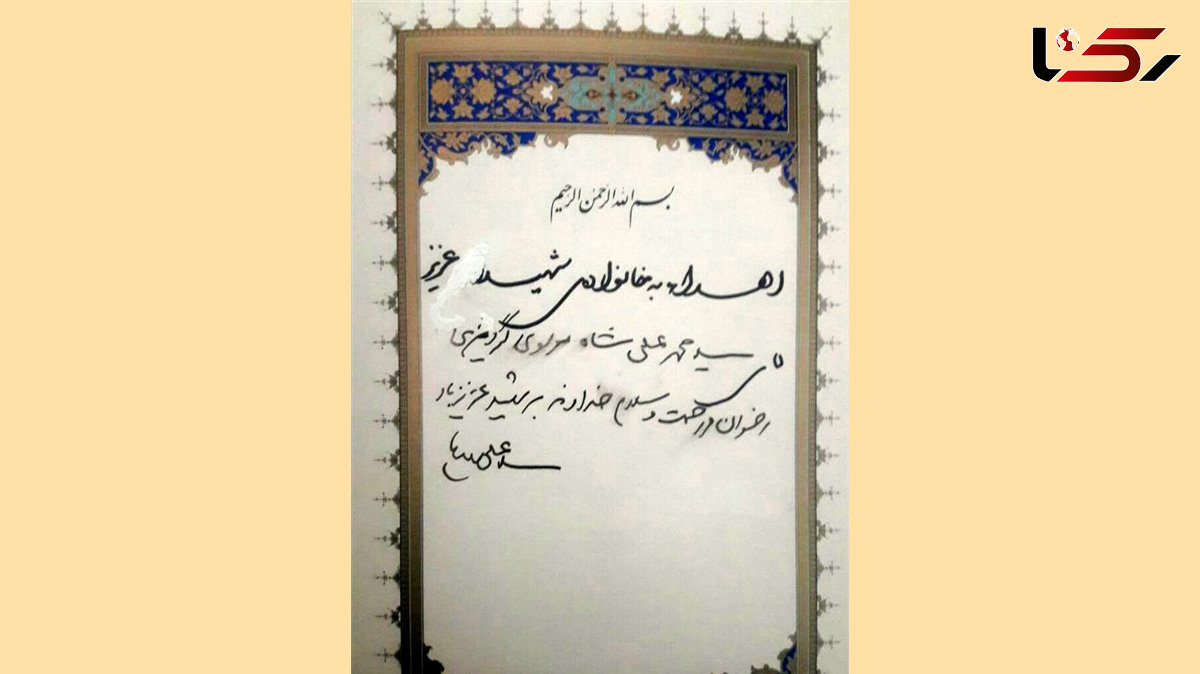 رکنا
بسم الله الرحمن الرحیم
اهداء به خانواده‌ی شهید عزیز
سید محمد علی شاه موسوی گردیزی
رضوان و رحمت و سلام خداوند بر شهید عزیز باد
سید علی